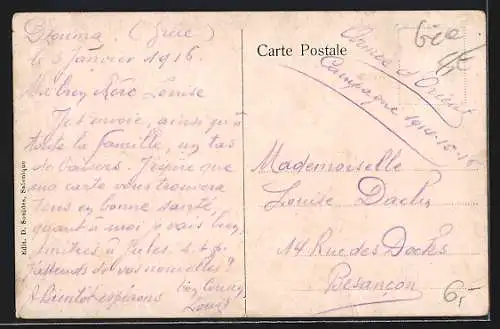 Dzouma. (Grèce)
le 3 Janvier 1916.
Ma bien chère Louise
Je t'envoie, ainsi qu'à
toute la famille, un tas
de baisers. J'espère que
ma carte vous trouvera
tous en bonne santé
quant à moi je vais bien,
à Jules.
J'attends de vos nouvelles?
A Bientôt espérons
Louis
Edit. D. Salonique
Carte Postale
Armée d'Orient
Campagne 1914-15-16
Mademoiselle
Louise
14 Rue des Docks
Besançon
6,-